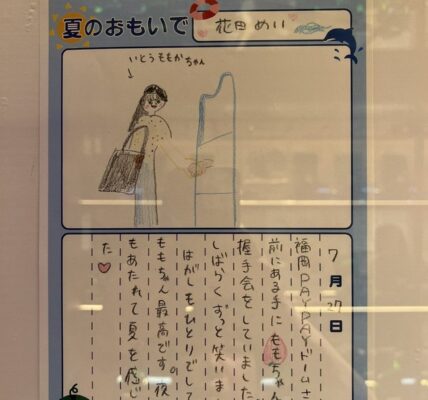 夏のおもいで
花田めい
いとうももかちゃん
7月27日
福岡PAYPAYドームさ
前にある手にももちゃん
握手会をしていました
しばらくずっと笑いま
はがしもひとりでして
ももちゃん最高です。後
もあたれて夏を感じ
た